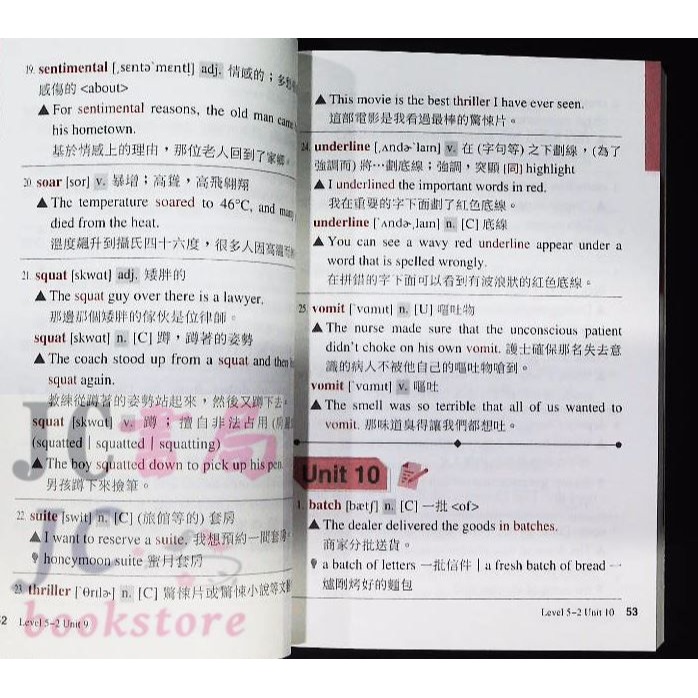 19. sentimental [ˌsɛntəˈmɛntl̩] adj. 情感的；多愁
感傷的 <about>
▲ For sentimental reasons, the old man came
his hometown.
基於情感上的理由，那位老人回到了家鄉。
20. soar [sor] v. 暴增；高聳，高飛翱翔
▲ The temperature soared to 46°C, and many
died from the heat.
溫度飆升到攝氏四十六度，很多人因高溫
21. squat [skwɑt] adj. 矮胖的
▲ The squat guy over there is a lawyer.
那邊那個矮胖的傢伙是位律師。
squat [skwɑt] n. [C] 蹲，蹲著的姿勢
▲ The coach stood up from a squat and then
squat again.
教練從蹲著的姿勢站起來，然後又蹲下去。
squat [skwɑt] v. 蹲；擅自非法占用
(squatted | squatted | squatting)
▲ The boy squatted down to pick up his pen.
男孩蹲下來撿筆。
22. suite [swit] n. [C] (旅館等的) 套房
▲ I want to reserve a suite. 我想預約一間套房。
honeymoon suite 蜜月套房
23. thriller [ˈθrɪlɚ] n. [C] 驚悚片或驚悚小說等文
Level 5-2 Unit 9
▲ This movie is the best thriller I have ever seen.
這部電影是我看過最棒的驚悚片。
24. underline [ˌʌndɚˈlaɪn] v. 在 (字句等) 之下劃線，(為了
強調而) 將…劃底線；強調，突顯 [同] highlight
▲ I underlined the important words in red.
我在重要的字下面劃了紅色底線。
underline [ˈʌndɚˌlaɪn] n. [C] 底線
▲ You can see a wavy red underline appear under a
word that is spelled wrongly.
在拼錯的字下面可以看到有波浪狀的紅色底線。
25. vomit [ˈvɑmɪt] n. [U] 嘔吐物
▲ The nurse made sure that the unconscious patient
didn't choke on his own vomit. 護士確保那名失去意
識的病人不被他自己的嘔吐物嗆到。
vomit [ˈvɑmɪt] v. 嘔吐
▲ The smell was so terrible that all of us wanted to
vomit. 那味道臭得讓我們都想吐。
Unit 10
1. batch [bætʃ] n. [C] 一批 <of>
▲ The dealer delivered the goods in batches.
商家分批送貨。
a batch of letters 一批信件 | a fresh batch of bread 一
爐剛烤好的麵包
Level 5-2 Unit 10 53
JC書局
JC
bookstore